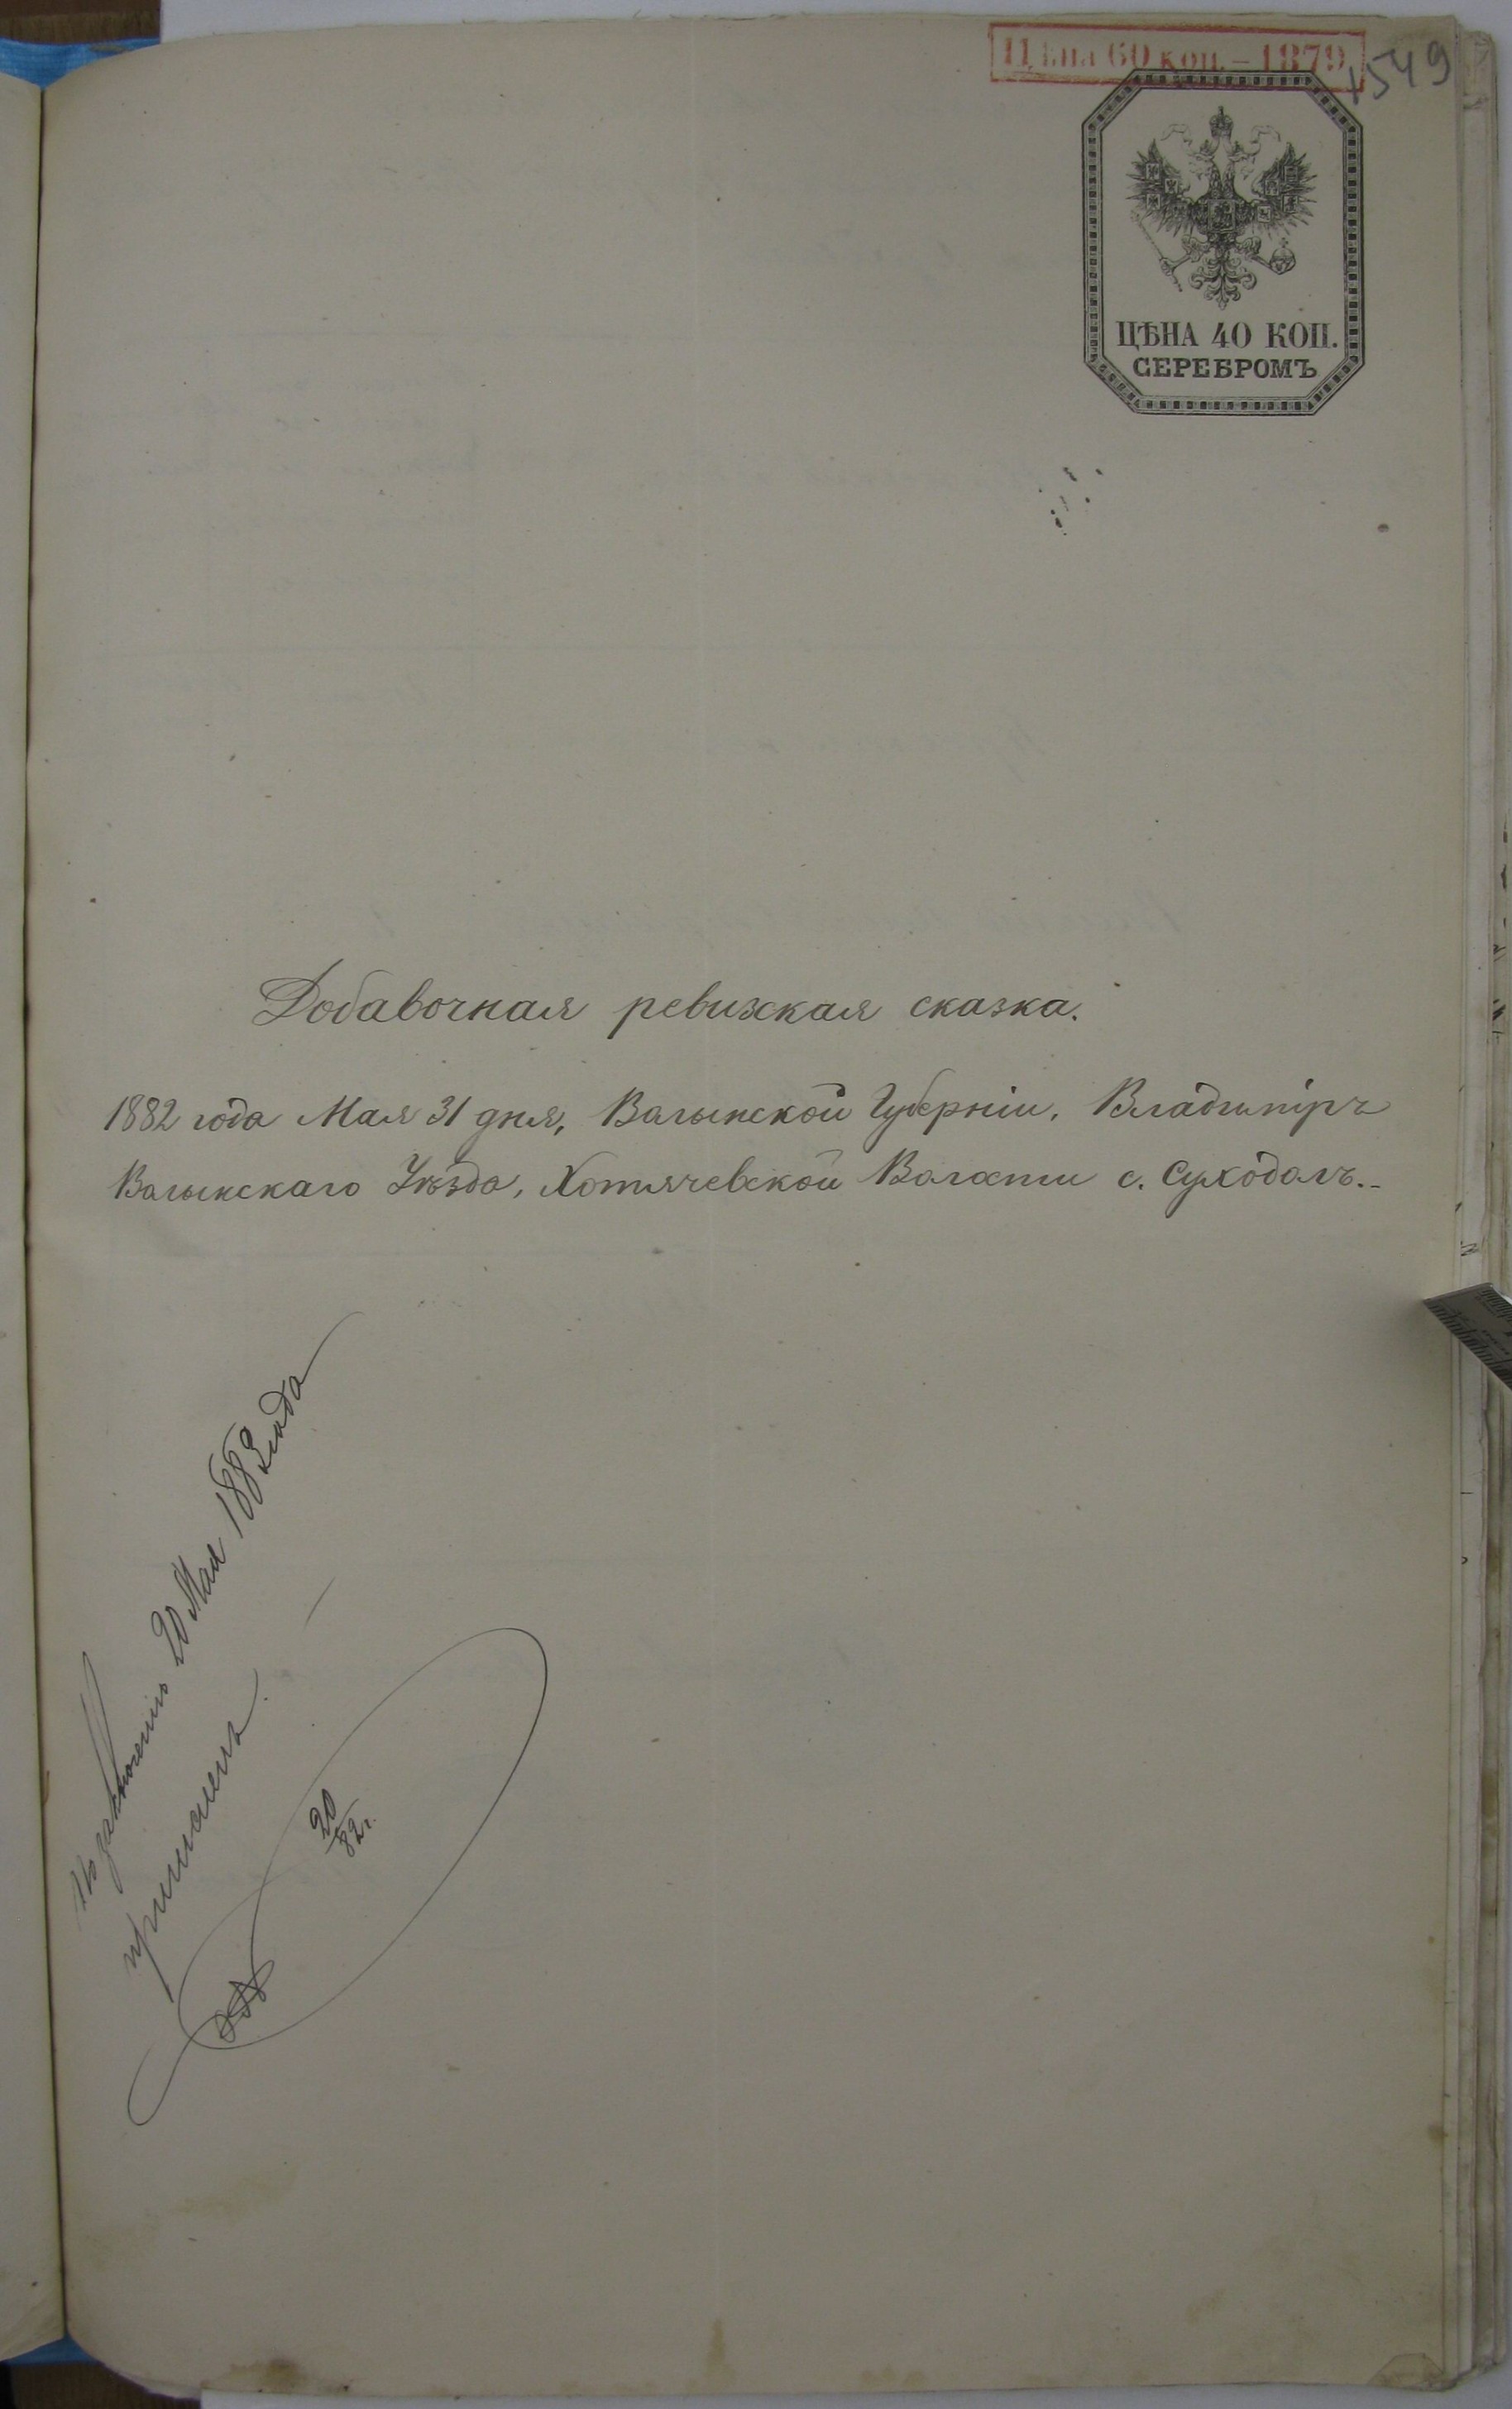 Цѣна 60 коп. – 1879
1549
ЦѢНА 40 КОП.
СЕРЕБРОМЪ
Добавочная ревизская сказка.
1882 года Мая 31 дня, Валынской Губерніи, Владимiръ
Валынскаго Уѣзда, Хотячевской Валости с. Суходолъ.-
По заключенію 20 Мая 1882 года
20
82 г.